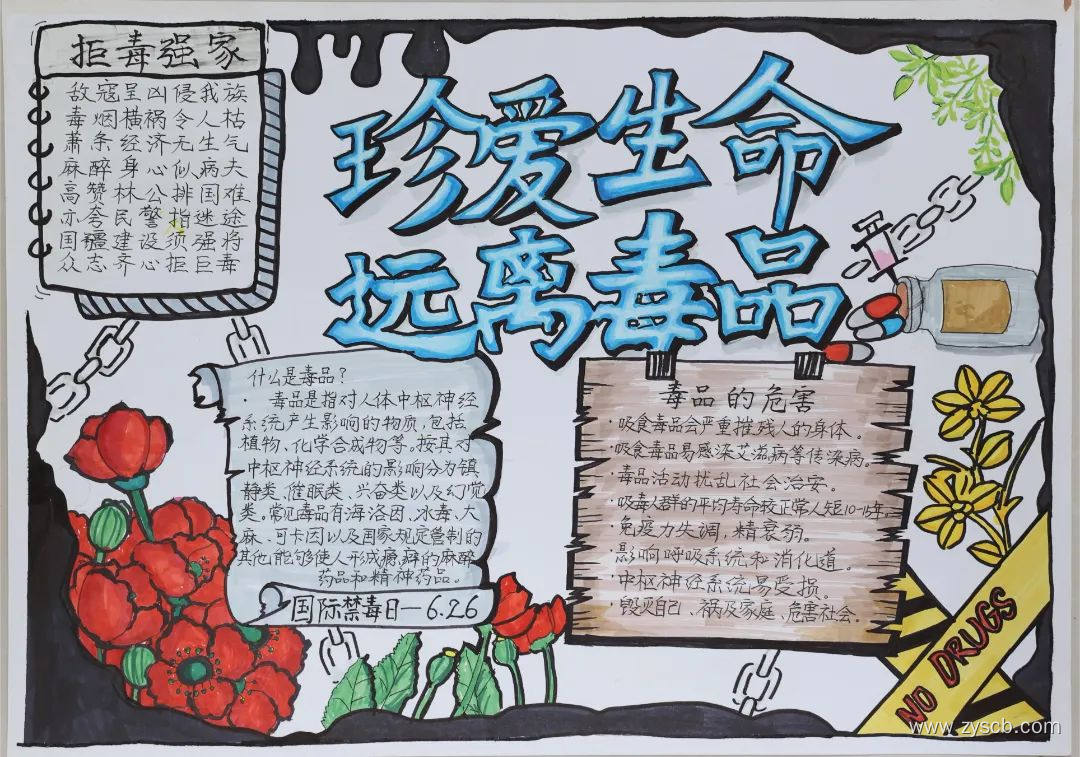 拒毒强家
敌寇呈凶侵我族
毒烟横祸令人枯
萧条经济无生气
麻醉身心似病夫
高赞林公排国难
亦夸民警指迷途
国疆建设须强将
众志齐心拒巨毒
珍爱生命
远离毒品
什么是毒品?
· 毒品是指对人体中枢神经
系统产生影响的物质,包括
植物、化学合成物等。按其对
中枢神经系统的影响分为镇
静类、催眠类、兴奋类以及幻觉
类。常见毒品有海洛因、冰毒、大
麻、可卡因以及国家规定管制的
其他能够使人形成瘾癖的麻醉
药品和精神药品。
国际禁毒日—6.26
毒品的危害
·吸食毒品会严重摧残人的身体。
·吸食毒品易感染艾滋病等传染病。
·毒品活动扰乱社会治安。
·吸毒人群的平均寿命较正常人短10-15年。
·免疫力失调,精衰弱。
·影响呼吸系统和消化道。
·中枢神经系统易受损。
·毁灭自己、祸及家庭、危害社会。
NO DRUGS
www.zyscb.com